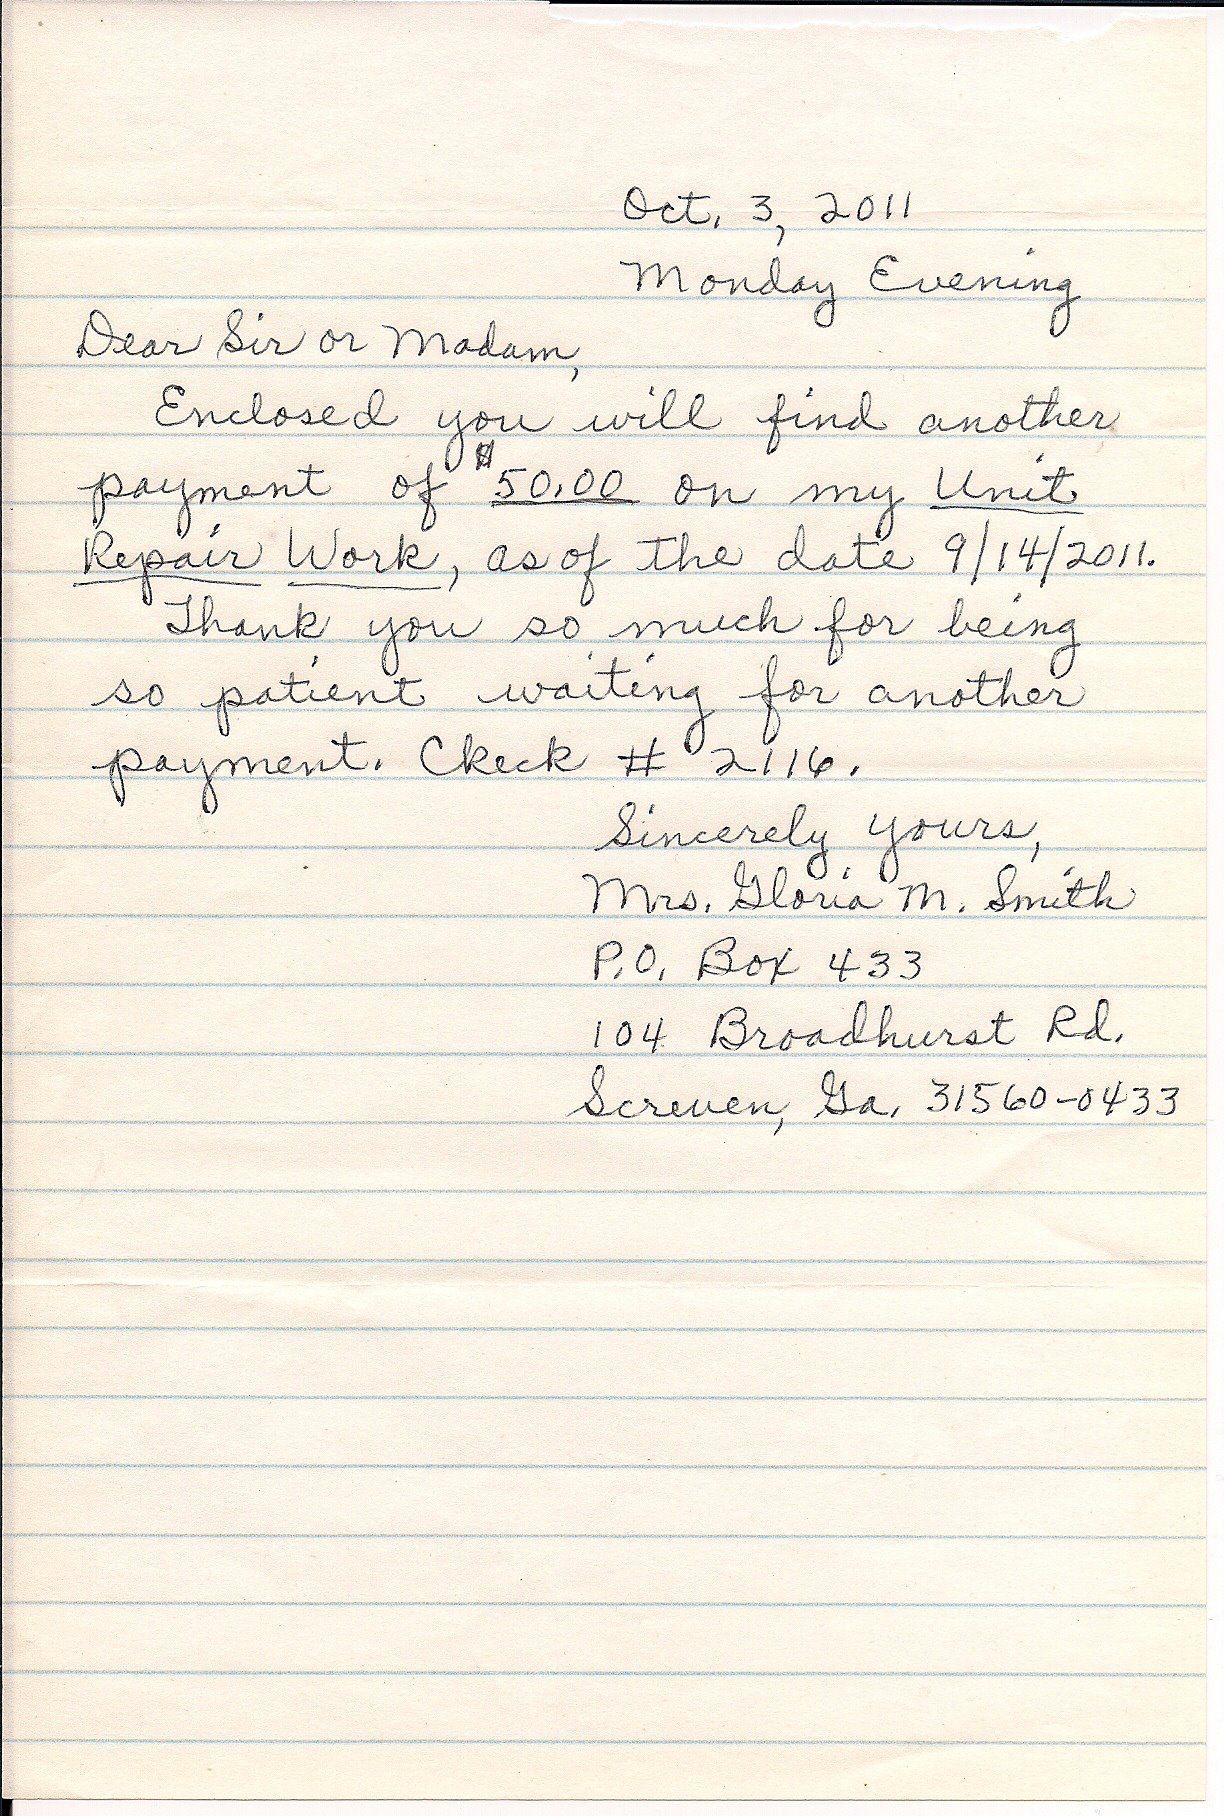 Oct. 3, 2011
Monday Evening
Dear Sir or Madam,
Enclosed you will find another
payment of $50.00 on my Unit
Repair Work, as of the date 9/14/2011.
Thank you so much for being
so patient waiting for another
payment. Check # 2116.
Sincerely yours,
Mrs. Gloria M. Smith
P.O. Box 433
104 Broadhurst Rd.
Screven, Ga. 31560-0433